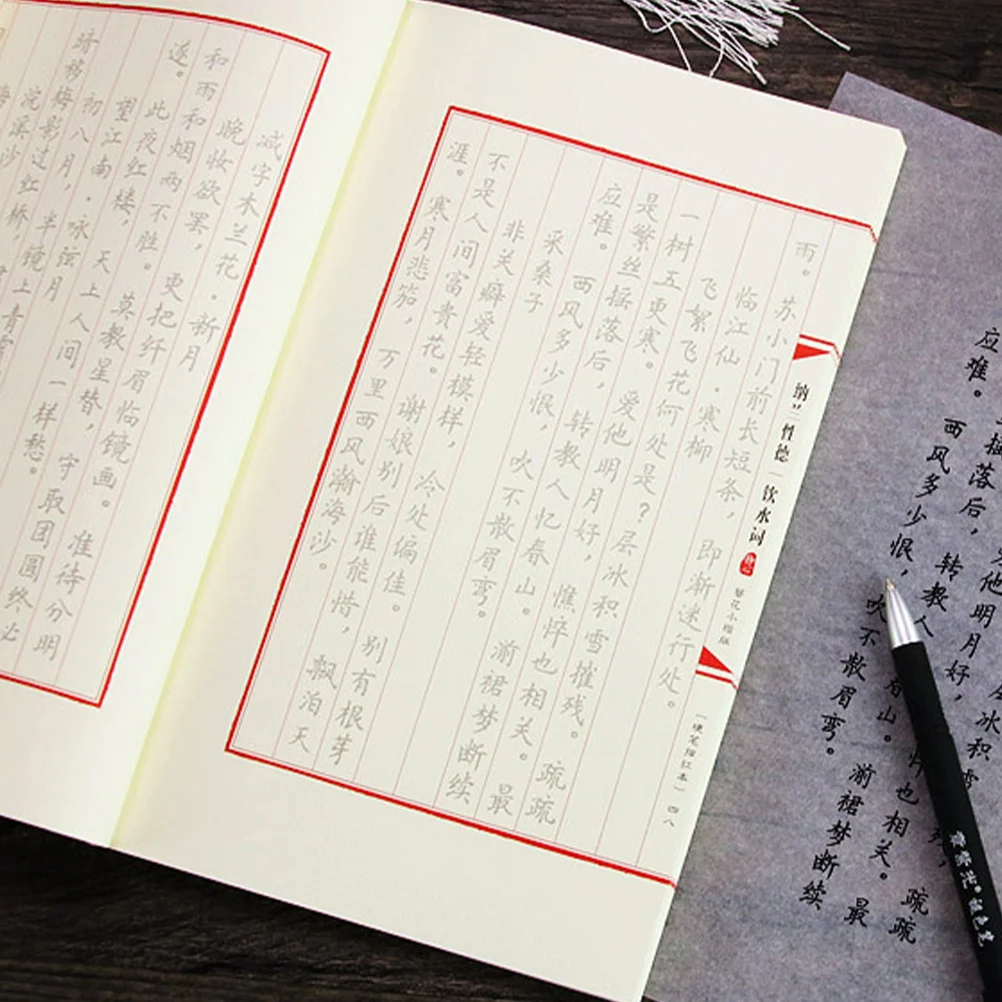 雨。苏小门前长短条，即渐迷行处。
临江仙·寒柳
飞絮飞花何处是？层冰积雪摧残。疏疏
一树五更寒。爱他明月好，憔悴也相关。最
是繁丝摇落后，转教人忆春山。湔裙梦断续
应难。西风多少恨，吹不散眉弯。
采桑子
非关癖爱轻模样，冷处偏佳。别有根芽
不是人间富贵花。谢娘别后谁能惜，飘泊天
涯。寒月悲笳，万里西风瀚海沙。
纳兰性德｜饮水词
簪花小楷版
〔硬笔描红本〕四八
减字木兰花·新月
晚妆欲罢，更把纤眉临镜画。准待分明
和雨和烟两不胜。莫教星替，守取团圆终必
遂。此夜红楼，天上人间一样愁。
望江南·咏弦月
初八月，半镜上青
移梅影过红桥，
浣溪沙
冰积雪残，疏疏
他明月好，也相关。最
摇落后，转教人山。湔裙梦断续
应难。西风多少恨，吹不散眉弯。